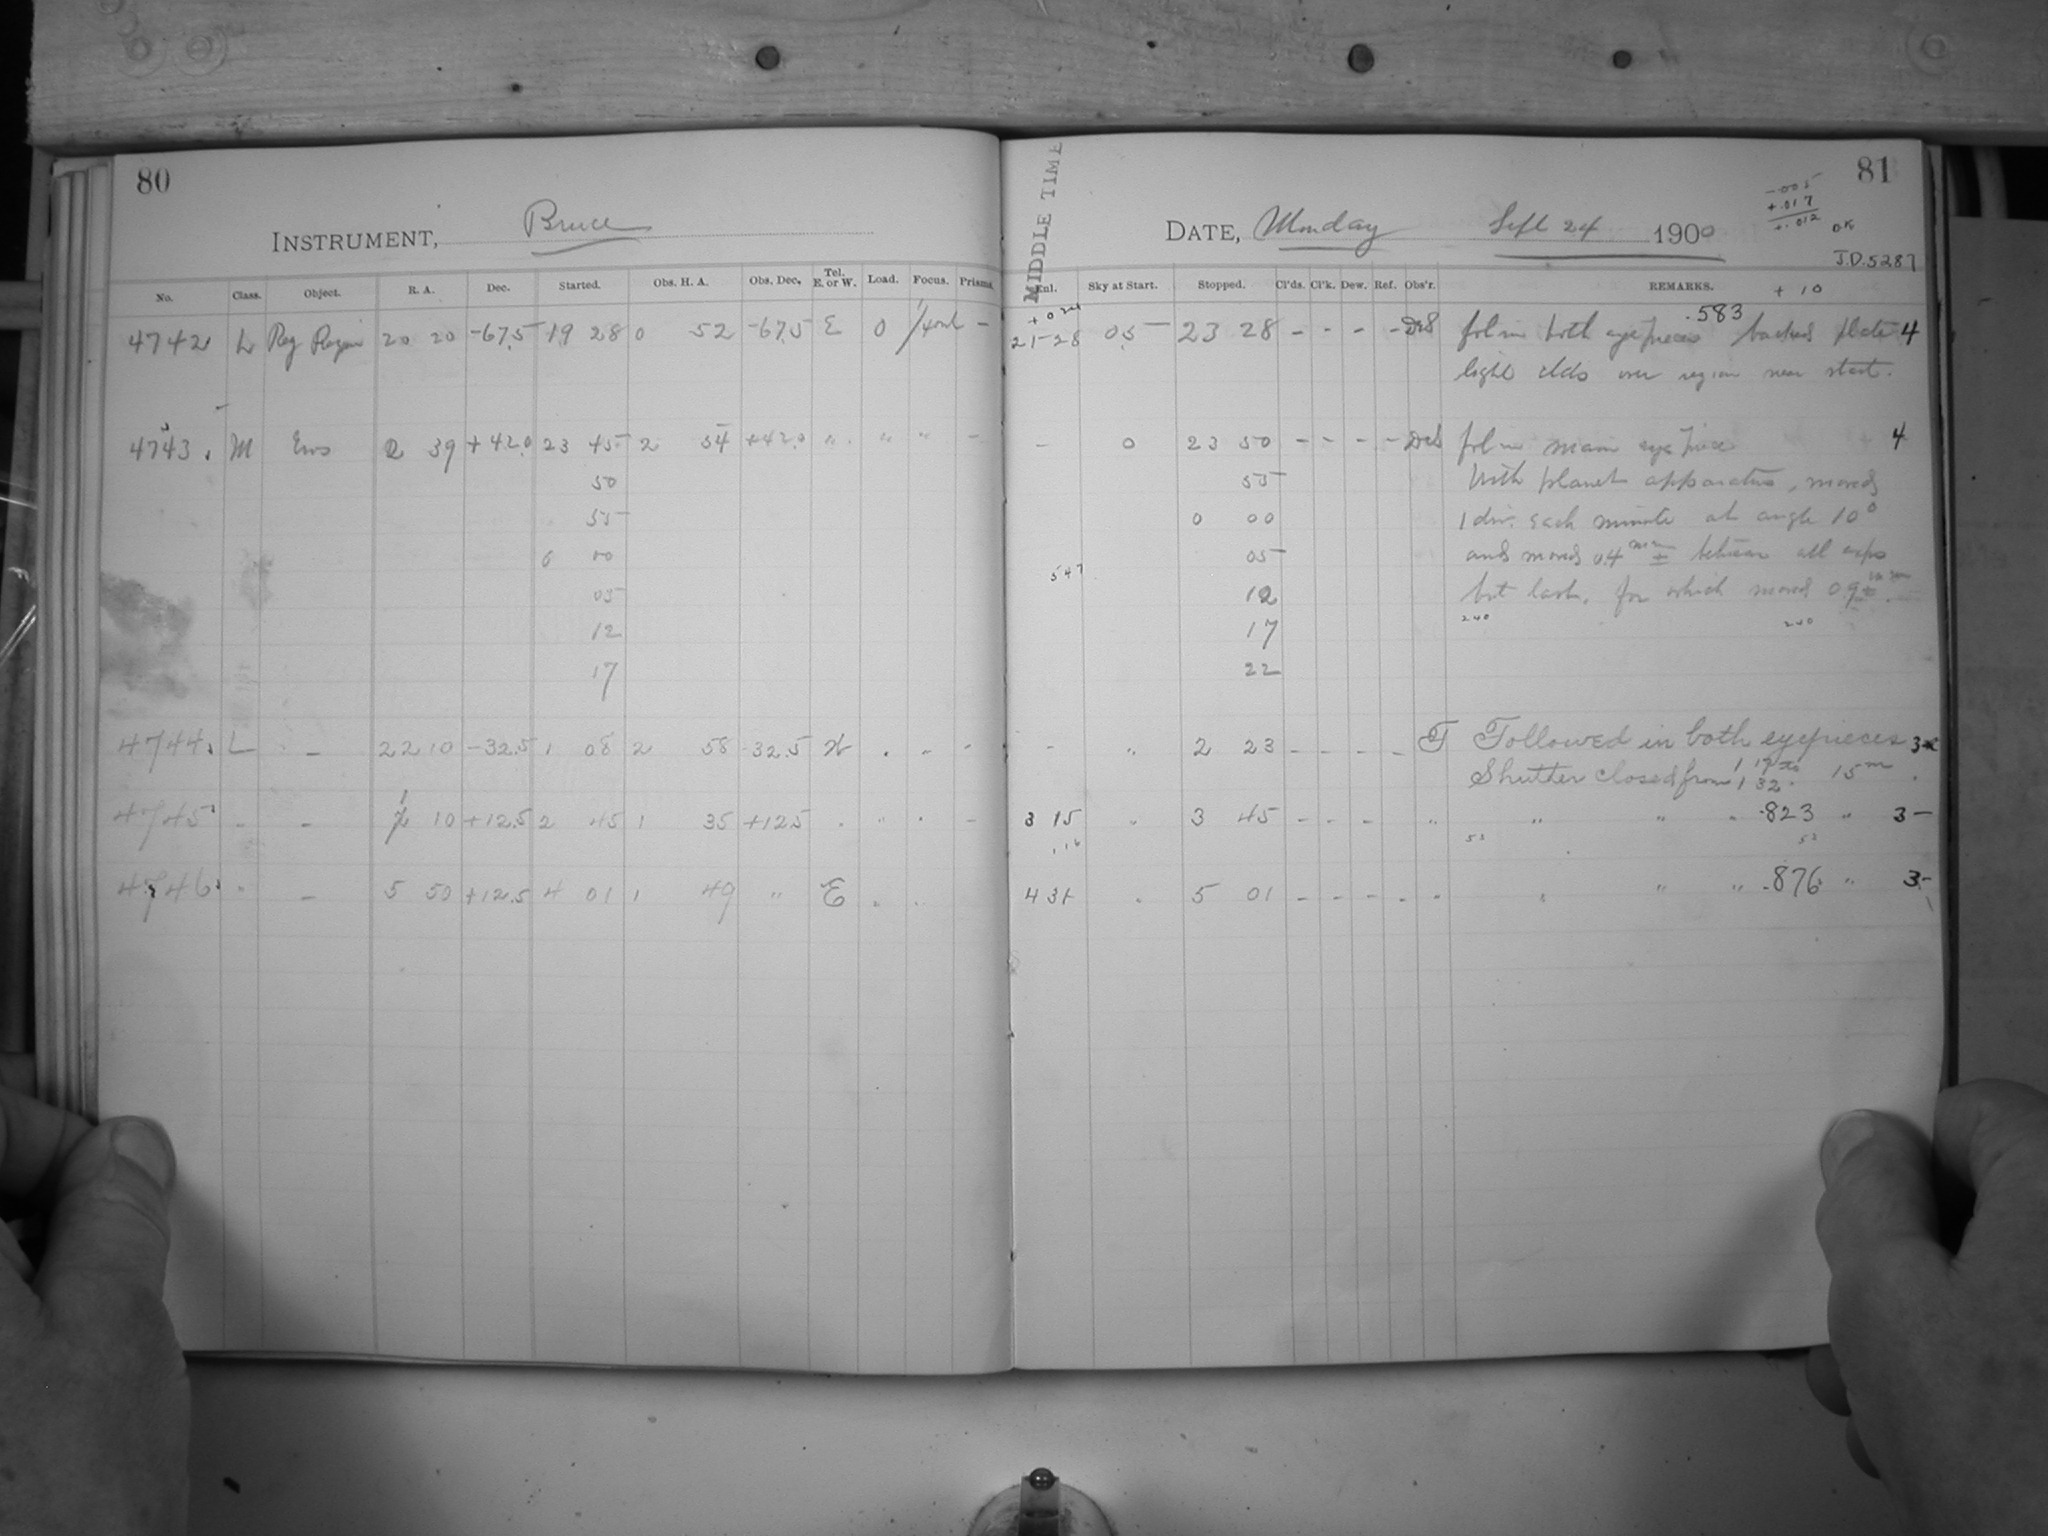 80
INSTRUMENT, Bruce
No. Class. Object. R. A. Dec. Started. Obs. H. A. Obs. Dec. Tel. E. or W. Load. Focus. Prisms.
4742 L Reg Region 20 20 -67.5 19 28 0 52 -67.5 E 0 -
4743 M Eros 2 39 +42.0 23 45 2 54 +42.0 " " " -
50
55
0 00
05
12
17
4744 L - 22 10 -32.5 1 08 2 58 -32.5 W " " -
4745 - - 1 10 +12.5 2 45 1 35 +12.5 " " " -
4746 " - 5 50 +12.5 4 01 1 49 " E " "
81
MIDDLE TIME
DATE, Monday Sept 24 1900
-.005
+.017
+.012 OK
J.D. 5287
Sky at Start. Stopped. Cl'ds. Cl'k. Dew. Ref. Obs'r. REMARKS. + 10
21-28 05 23 28 - - - - DeS fol in both eyepieces .583 backed plate 4
light clds over region near start.
- 0 23 50 - - - - DeS fol in main eye piece 4
55 With planet apparatus, moved
0 00 1 div. each minute at angle 10°
547 05 and moved 0.4 mm ± between all exps
12 but last, for which moved 0.9 mm ±
240 240
17
22
- " 2 23 - - - - F Followed in both eyepieces 3
Shutter closed from 1 17 to 1 32. 15m
3 15 " 3 45 - - - " " " " .823 " 3-
53 53
4 31 " 5 01 - - - - " " " " .876 " 3-